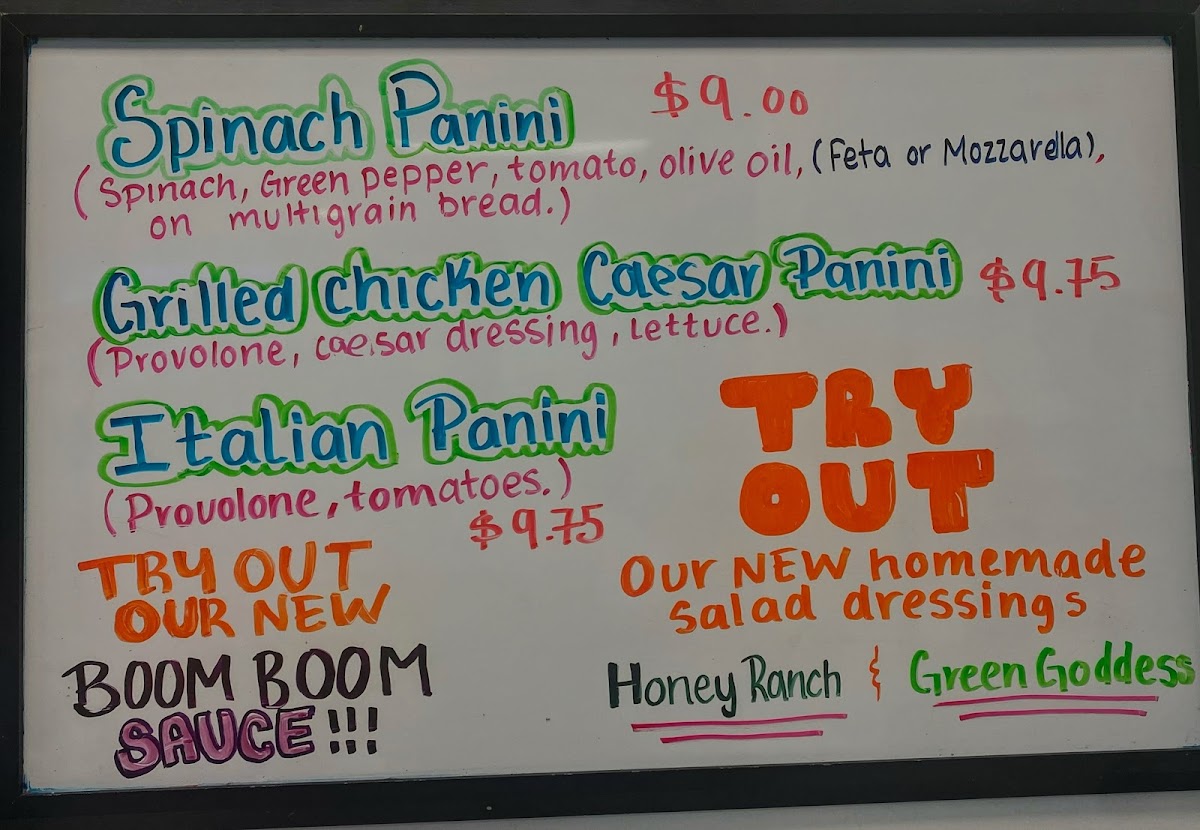 Spinach Panini $9.00
(Spinach, Green pepper, tomato, olive oil, (Feta or Mozzarella),
on multigrain bread.)
Grilled chicken Caesar Panini $9.75
(Provolone, caesar dressing, Lettuce.)
Italian Panini
(Provolone, tomatoes.)
$9.75
TRY OUT
OUR NEW
BOOM BOOM
SAUCE!!!
TRY
OUT
Our NEW homemade
salad dressings
Honey Ranch & Green Goddess